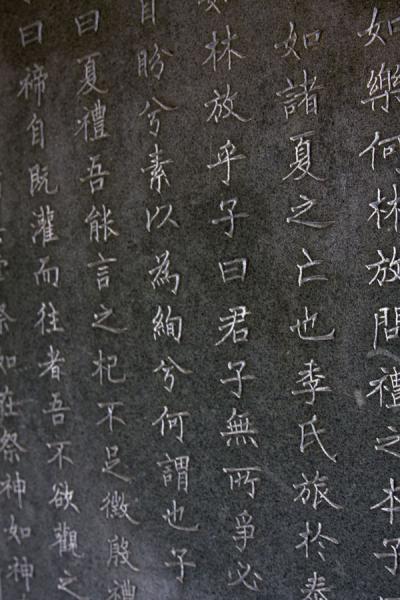 如樂何林放問禮之本子
如諸夏之亡也季氏旅於泰
林放乎子曰君子無所爭必
盼兮素以為絢兮何謂也子
曰夏禮吾能言之杞不足徵殷禮
曰禘自既灌而往者吾不欲觀之
祭如在祭神如神